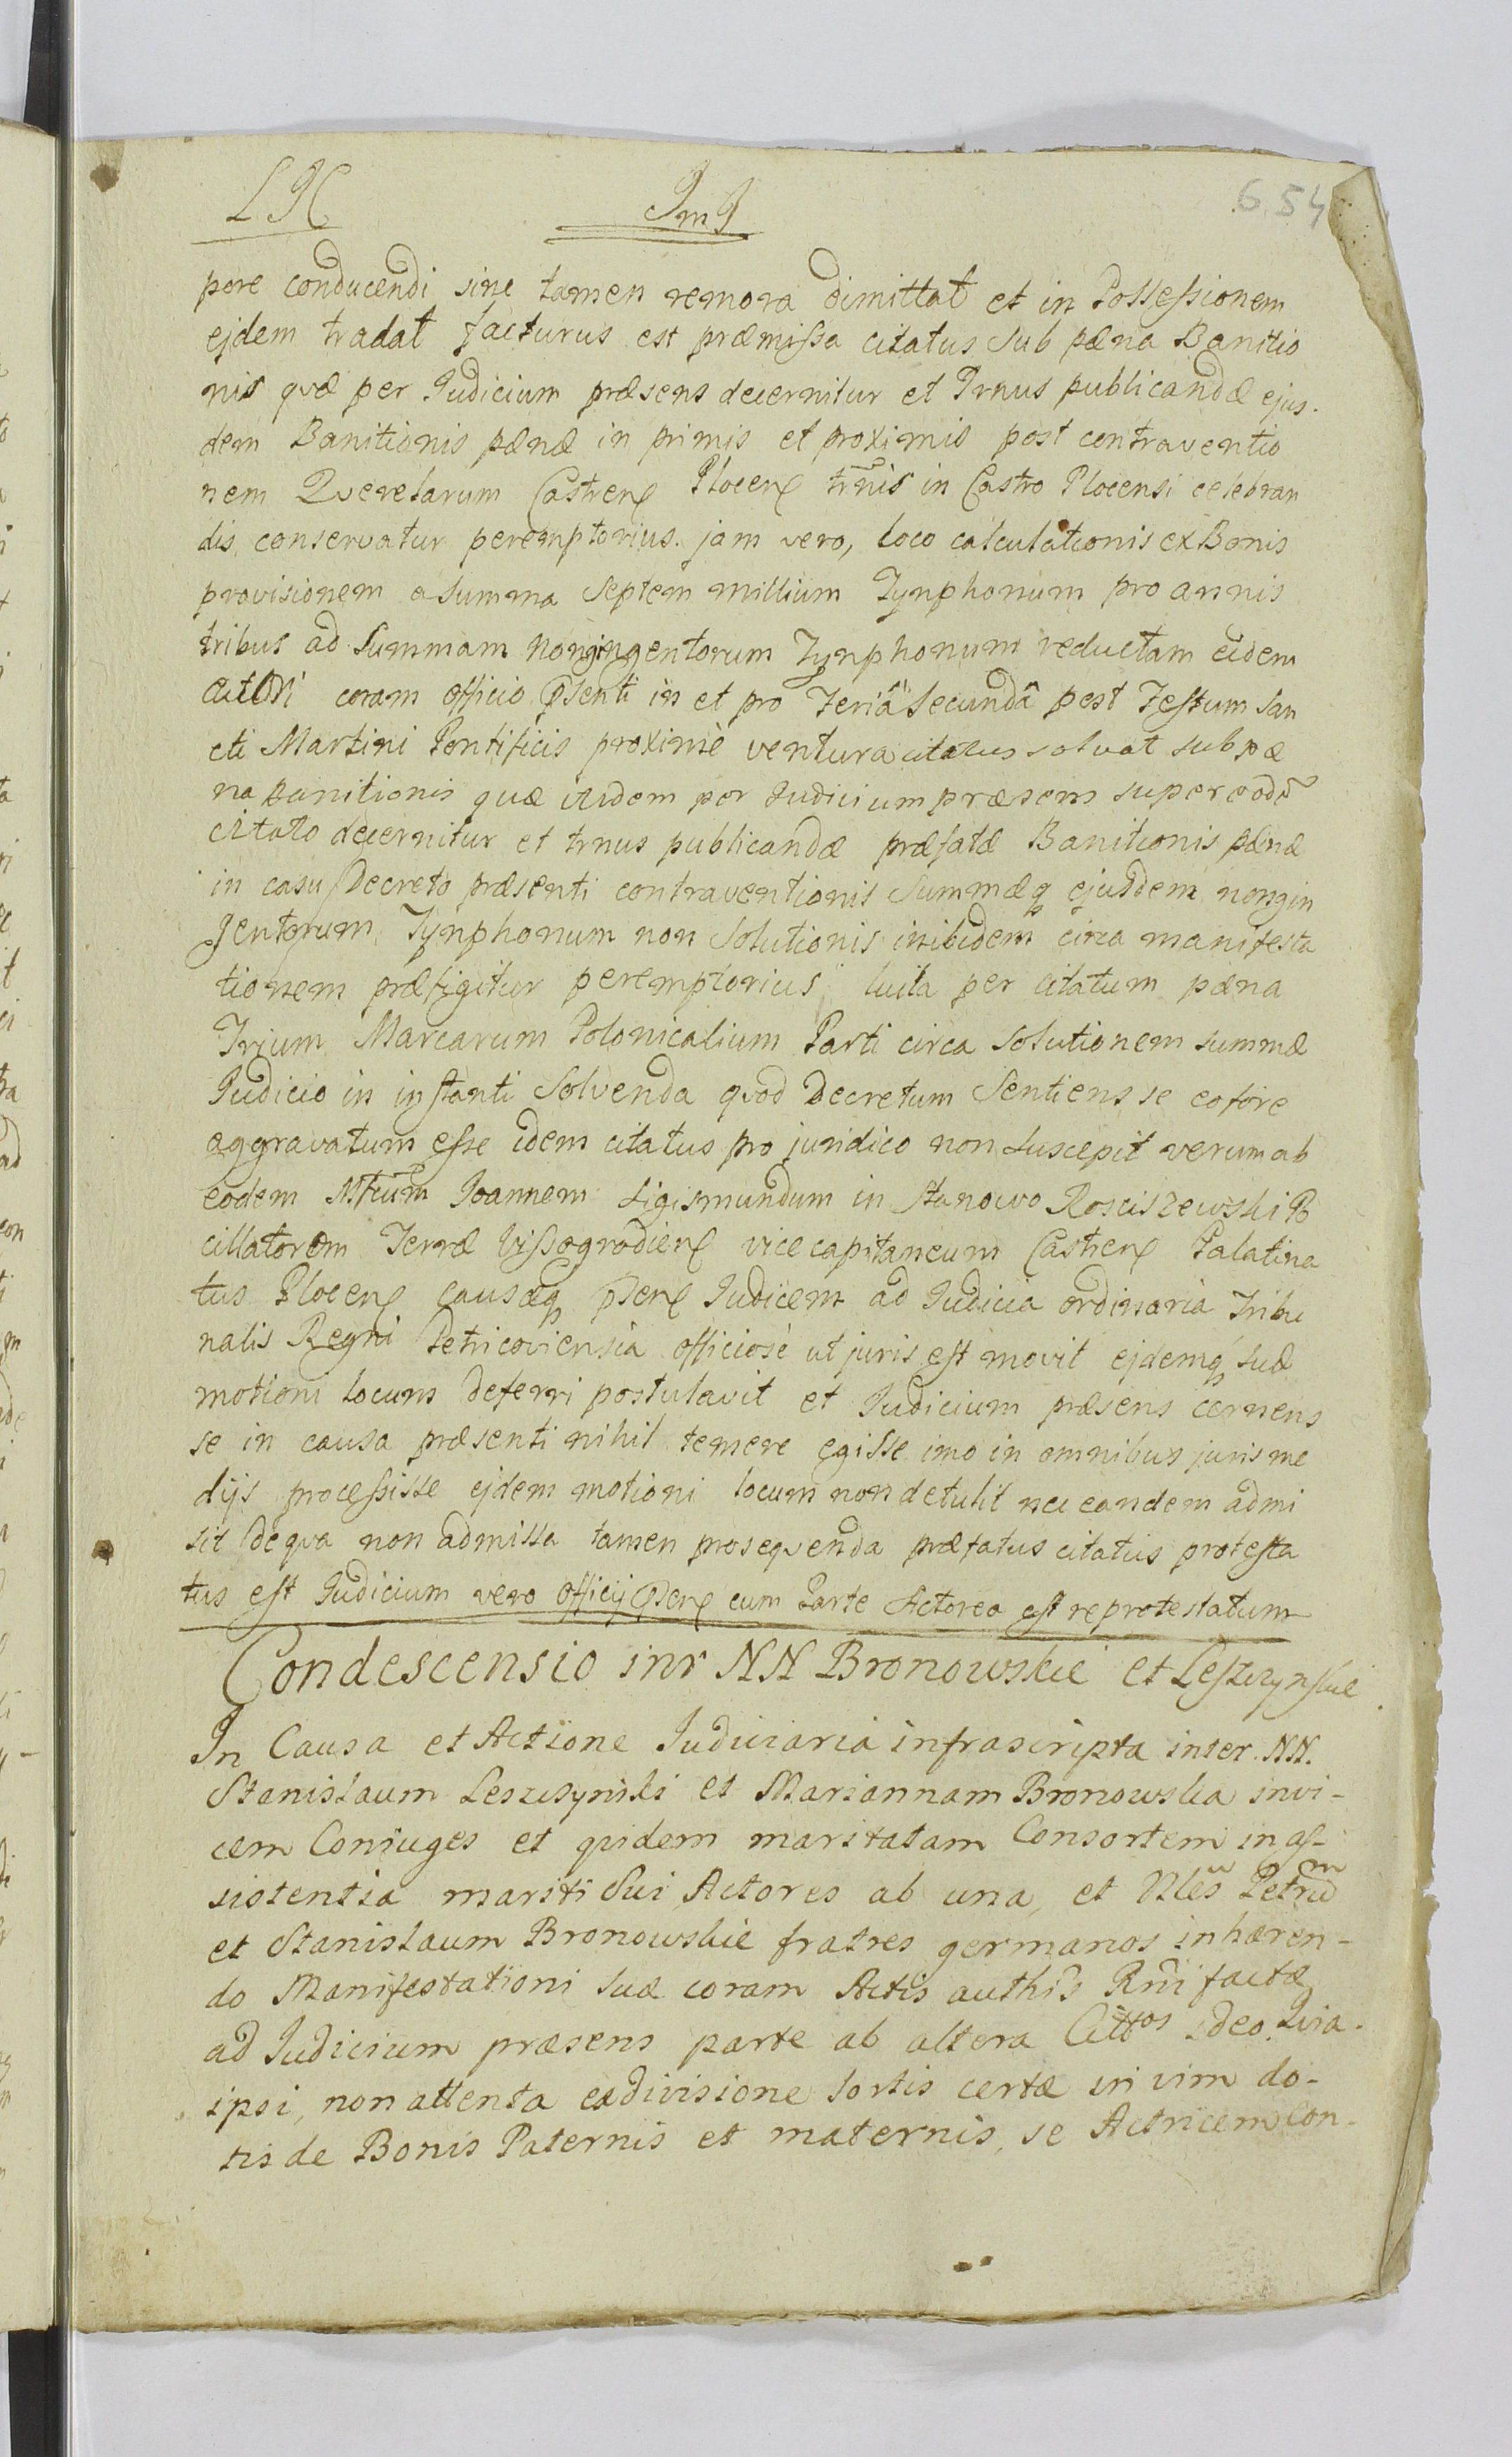 654
pore conducendi sine tamen remora dimittat et in Possessionem
ejdem tradat facturus est præmissa citatus sub pæna Banitio
nis quæ per Judicium præsens decernitur et Trnus publicandæ ejus.
dem Banitionis pænæ in primis et proximis post contraventio
nem Querelarum Castren Plocen trnis in Castro Plocensi celebran
dis conservatur peremptorius. jam vero, loco calculationis ex Bonis
provisionem a summa septem millium Tynphonum pro annis
tribus ad summam nongingentorum Tynphonum reductam eidem
coram officio psenti in et pro Feriâ secundâ post Festum San
cti Martini Pontificis proximè ventura citatus solvat sub pæ
na banitionis quæ itidem per Judicium præsens super eodẽ
citato decernitur et trnus publicandæ præfatæ Banitionis pænæ
in casu Decreto præsenti contraventionis summæq ejusdem nongin
gentorum Tynphonum non solutionis inibidem circa manifesta
tionem præfigitur peremptorius luita per citatum pæna
Trium Marcarum Polonicalium Parti circa solutionem summæ
Judicio in instanti solvenda quod Decretum sentiens se eo fore
aggravatum esse idem citatus pro juridico non suscepit verum ab
eodem Mficum Joannem Sigismundum in Stanowo Rosciszewski Po
cillatorem Terræ Vissogrodien vice capitaneum Castren Palatina
tus Plocen causæq psen Judicem ad Judicia ordinaria Tribu
nalis Regni Petricoviensia officiosè ut juris est movit ejdemq suæ
motioni locum deferri postulavit et Judicium præsens cernens
se in causa præsenti nihil temere egisse imo in omnibus juris me
dijs processisse ejdem motioni locum non detulit nec eandem admi
sit de qva non admissa tamen proseqvenda præfatus citatus protesta
tus est Judicium vero officij psen cum Parte Actorea est reprotestatum
Condescensio inr NN Bronowskie et Leszczynskie
In Causa et Actione Judiciaria infrascripta inter NN.
Stanislaum Leszczynski et Mariannam Bronowska invi-
cem Coniuges et quidem maritatam Consortem in as-
sistentia mariti sui Actores ab una, et Nles Petrum
et Stanislaum Bronowskie fratres germanos inhæren-
do Manifestationi suæ coram Actis authis Rni factæ
ad Judicium præsens parte ab altera Cittos ideo Quia.
ipsi, non attenta exdivisione sortis certæ in vim do-
tis de Bonis Paternis et maternis, se Actricem con-